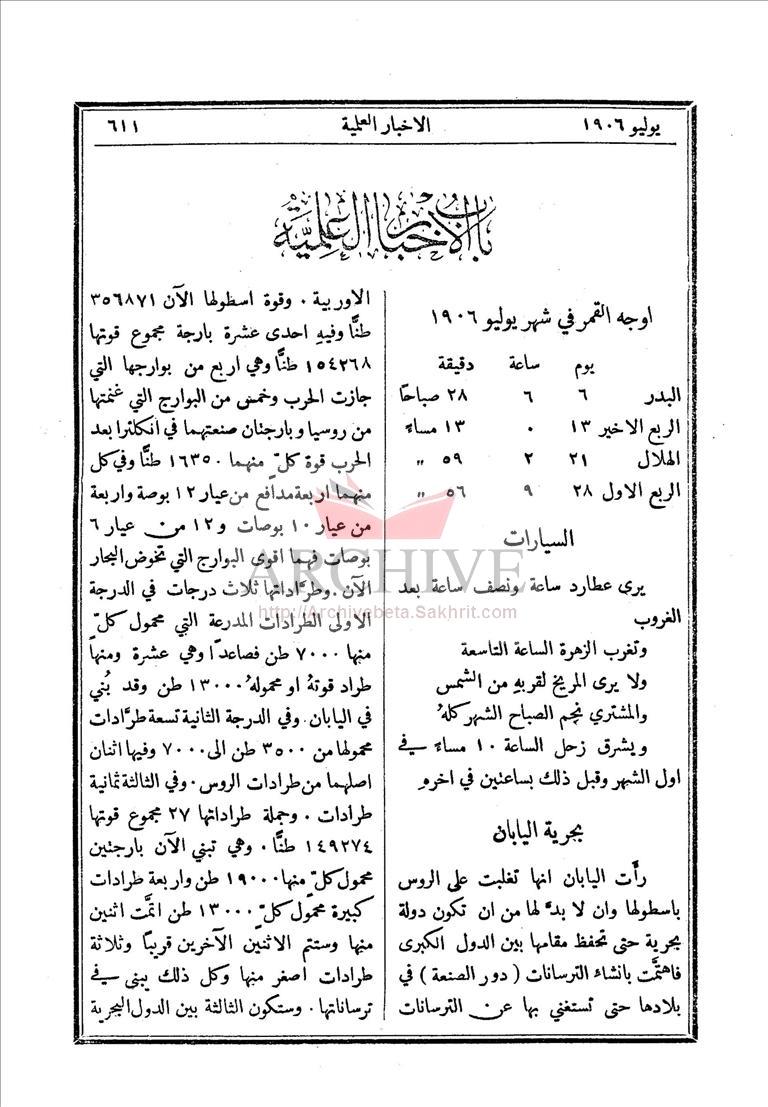 يوليو ١٩٠٦ الاخبار العلمية ٦١١
باب الاخبار العلمية
اوجه القمر في شهر يوليو ١٩٠٦
يوم ساعة دقيقة
البدر ٦ ٦ ٢٨ صباحًا
الربع الاخير ١٣ ٠ ١٣ مساءً
الهلال ٢١ ٢ ٥٩ "
الربع الاول ٢٨ ٩ ٥٦ "
السيارات
يرى عطارد ساعة ونصف ساعة بعد
الغروب
وتغرب الزهرة الساعة التاسعة
ولا يرى المريخ لقربهِ من الشمس
والمشتري نجم الصباح الشهر كلهُ
ويشرق زحل الساعة ١٠ مساءً في
اول الشهر وقبل ذلك بساعتين في اخرهِ
بحرية اليابان
رأَت اليابان انها تغلبت على الروس
باسطولها وان لا بدَّ لها من ان تكون دولة
بحرية حتى تحفظ مقامها بين الدول الكبرى
فاهتمَّت بانشاء الترسانات ( دور الصنعة ) في
بلادها حتى تستغني بها عن الترسانات
الاوربية . وقوة اسطولها الآن ٣٥٦٨٧١
طنًّا وفيهِ احدى عشرة بارجة مجموع قوتها
١٥٤٢٦٨ طنًّا وهي اربع من بوارجها التي
جازت الحرب وخمس من البوارج التي غنمتها
من روسيا وبارجتان صنعتهما في انكلترا بعد
الحرب قوة كلّ منهما ١٦٣٥٠ طنًّا وفي كل
منهما اربعة مدافع من عيار ١٢ بوصة واربعة
من عيار ١٠ بوصات و١٢ من عيار ٦
بوصات فهما اقوى البوارج التي تخوض البحار
الآن . وطرَّاداتها ثلاث درجات في الدرجة
الاولى الطرادات المدرعة التي محمول كلّ
منها ٧٠٠٠ طن فصاعدًا وهي عشرة ومنها
طراد قوتهُ او محمولهُ ١٣٠٠٠ طن وقد بُني
في اليابان . وفي الدرجة الثانية تسعة طرَّادات
محمولها من ٣٥٠٠ طن الى ٧٠٠٠ وفيها اثنان
اصلهما من طرادات الروس . وفي الثالثة ثمانية
طرادات . وجملة طراداتها ٢٧ مجموع قوتها
١٤٩٢٧٤ طنًّا . وهي تبني الآن بارجتين
محمول كلّ منها ١٩٠٠٠ طن واربعة طرادات
كبيرة محمول كلّ ١٣٠٠٠ طن اتمَّت اثنين
منها وستتم الاثنين الآخرين قريبًا وثلاثة
طرادات اصغر منها وكل ذلك يبنى في
ترساناتها . وستكون الثالثة بين الدول البحرية
ARCHIVE
http://Archivebeta.Sakhrit.com